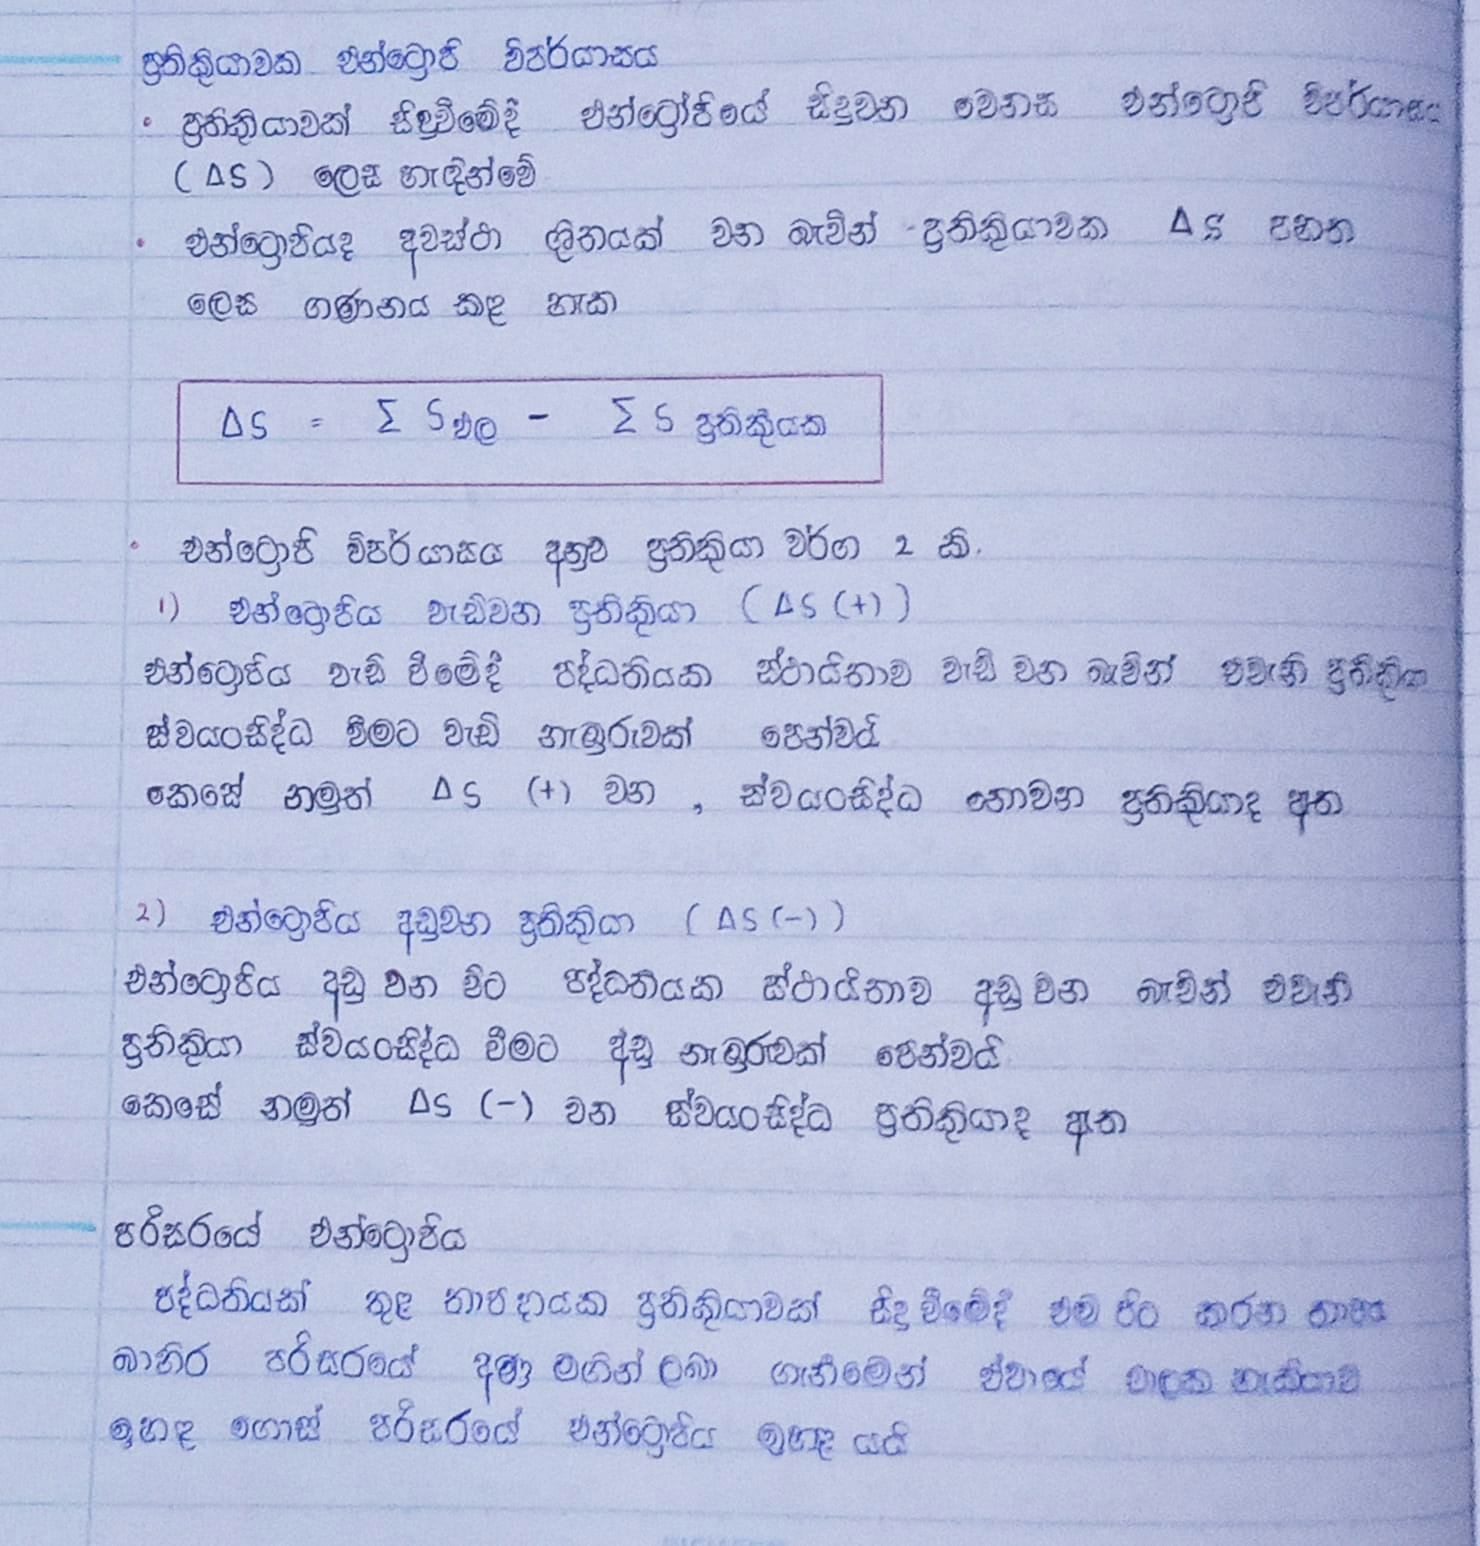 ප්‍රතික්‍රියාවක එන්ට්‍රොපි විපර්යාසය
• ප්‍රතික්‍රියාවක් සිදුවීමේදී එන්ට්‍රෝපියේ සිදුවන වෙනස එන්ට්‍රොපි විපර්යාසය
(ΔS) ලෙස හැඳින්වේ
• එන්ට්‍රොපියද අවස්ථා ශ්‍රිතයක් වන බැවින් ප්‍රතික්‍රියාවක ΔS පහත
ලෙස ගණනය කළ හැක
ΔS = Σ S ඵල - Σ S ප්‍රතික්‍රියක
• එන්ට්‍රොපි විපර්යාසය අනුව ප්‍රතික්‍රියා වර්ග 2 කි.
1) එන්ට්‍රොපිය වැඩිවන ප්‍රතික්‍රියා (ΔS (+))
එන්ට්‍රොපිය වැඩි වීමේදී පද්ධතියක ස්ථායිතාව වැඩි වන බැවින් එවැනි ප්‍රතික්‍රියා
ස්වයංසිද්ධ වීමට වැඩි නැඹුරුවක් පෙන්වයි
කෙසේ නමුත් ΔS (+) වන , ස්වයංසිද්ධ නොවන ප්‍රතික්‍රියාද ඇත
2) එන්ට්‍රොපිය අඩුවන ප්‍රතික්‍රියා (ΔS (-))
එන්ට්‍රොපිය අඩු වන විට පද්ධතියක ස්ථායිතාව අඩු වන බැවින් එවැනි
ප්‍රතික්‍රියා ස්වයංසිද්ධ වීමට අඩු නැඹුරුවක් පෙන්වයි
කෙසේ නමුත් ΔS (-) වන ස්වයංසිද්ධ ප්‍රතික්‍රියාද ඇත
පරිසරයේ එන්ට්‍රොපිය
පද්ධතියක් තුළ තාපදායක ප්‍රතික්‍රියාවක් සිදු වීමේදී එම පිට කරන තාපය
බාහිර පරිසරයේ අණු මගින් ලබා ගැනීමෙන් ඒවායේ චාලක හැකියාව
ඉහළ ගොස් පරිසරයේ එන්ට්‍රොපිය ඉහළ යයි